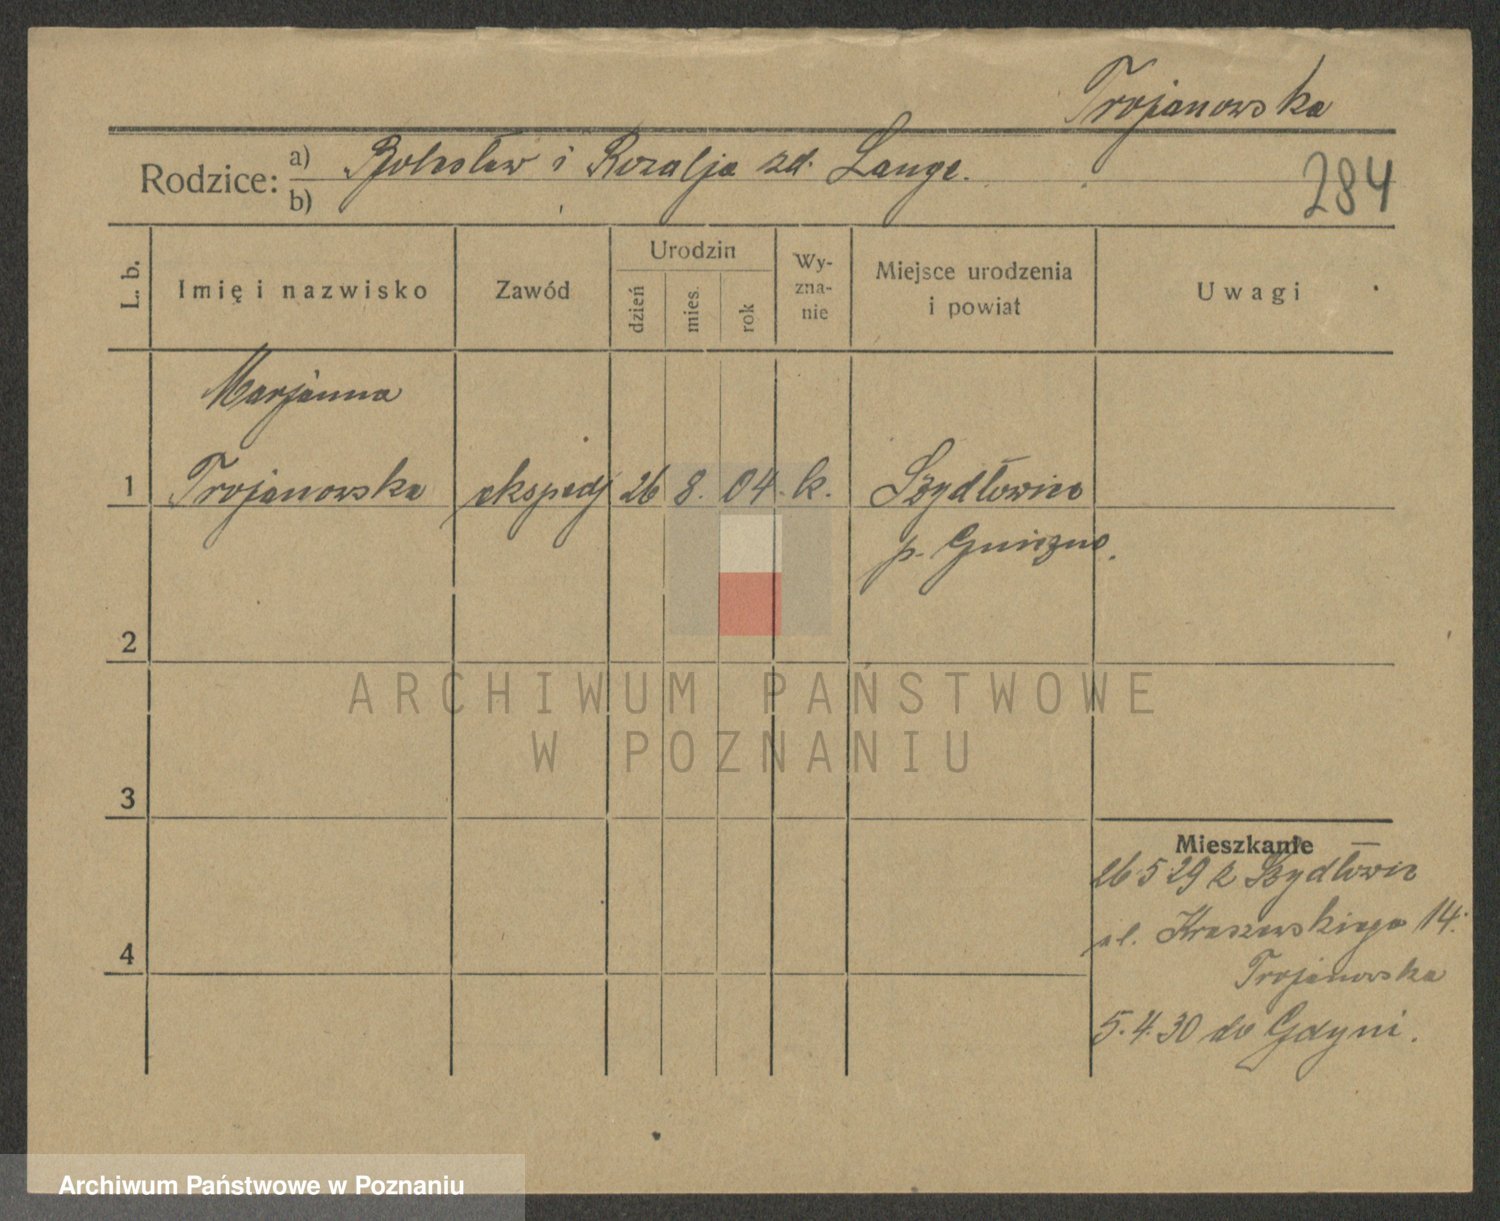 Trojanowska
Rodzice: a) Bolesław i Rozalja zd. Lange.
b)
284
L. b.
Imię i nazwisko
Zawód
Urodzin
dzień
mies.
rok
Wy-
zna-
nie
Miejsce urodzenia
i powiat
Uwagi
Marjanna
1 Trojanowska ekspedj 26 8. 04. k. Szydłowice
p. Gniezno.
2
ARCHIWUM PAŃSTWOWE
W POZNANIU
3
Mieszkanie
26 5 29 z Szydłowic
ul. Kraszewskiego 14.
4
Trojanowska
5.4.30 do Gdyni.
Archiwum Państwowe w Poznaniu